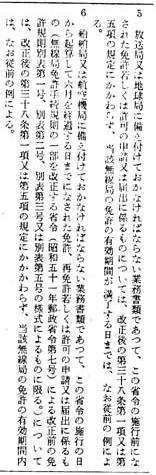 5　放送局又は地球局に備え付けておかなければならない業務書類であつて、この省令の施行前にな
された免許若しくは許可の申請又は届出に係るものについては、改正後の第三十八条第一項又は第
五項の規定にかかわらず、当該無線局の免許の有効期間が満了する日までは、なお従前の例によ
る。
6　船舶局又は航空機局に備え付けておかなければならない業務書類であつて、この省令の施行の日
から起算して六月を経過する日までになされた免許、再免許若しくは許可の申請又は届出に係るも
の（無線局免許手続規則の一部を改正する省令（昭和五十一年郵政省令第七号）による改正前の免
許規則別表第一号、別表第二号、別表第三号又は別表第五号の様式によるものに限る。）について
は、改正後の第三十八条第一項又は第五項の規定にかかわらず、当該無線局の免許の有効期間内
は、なお従前の例による。